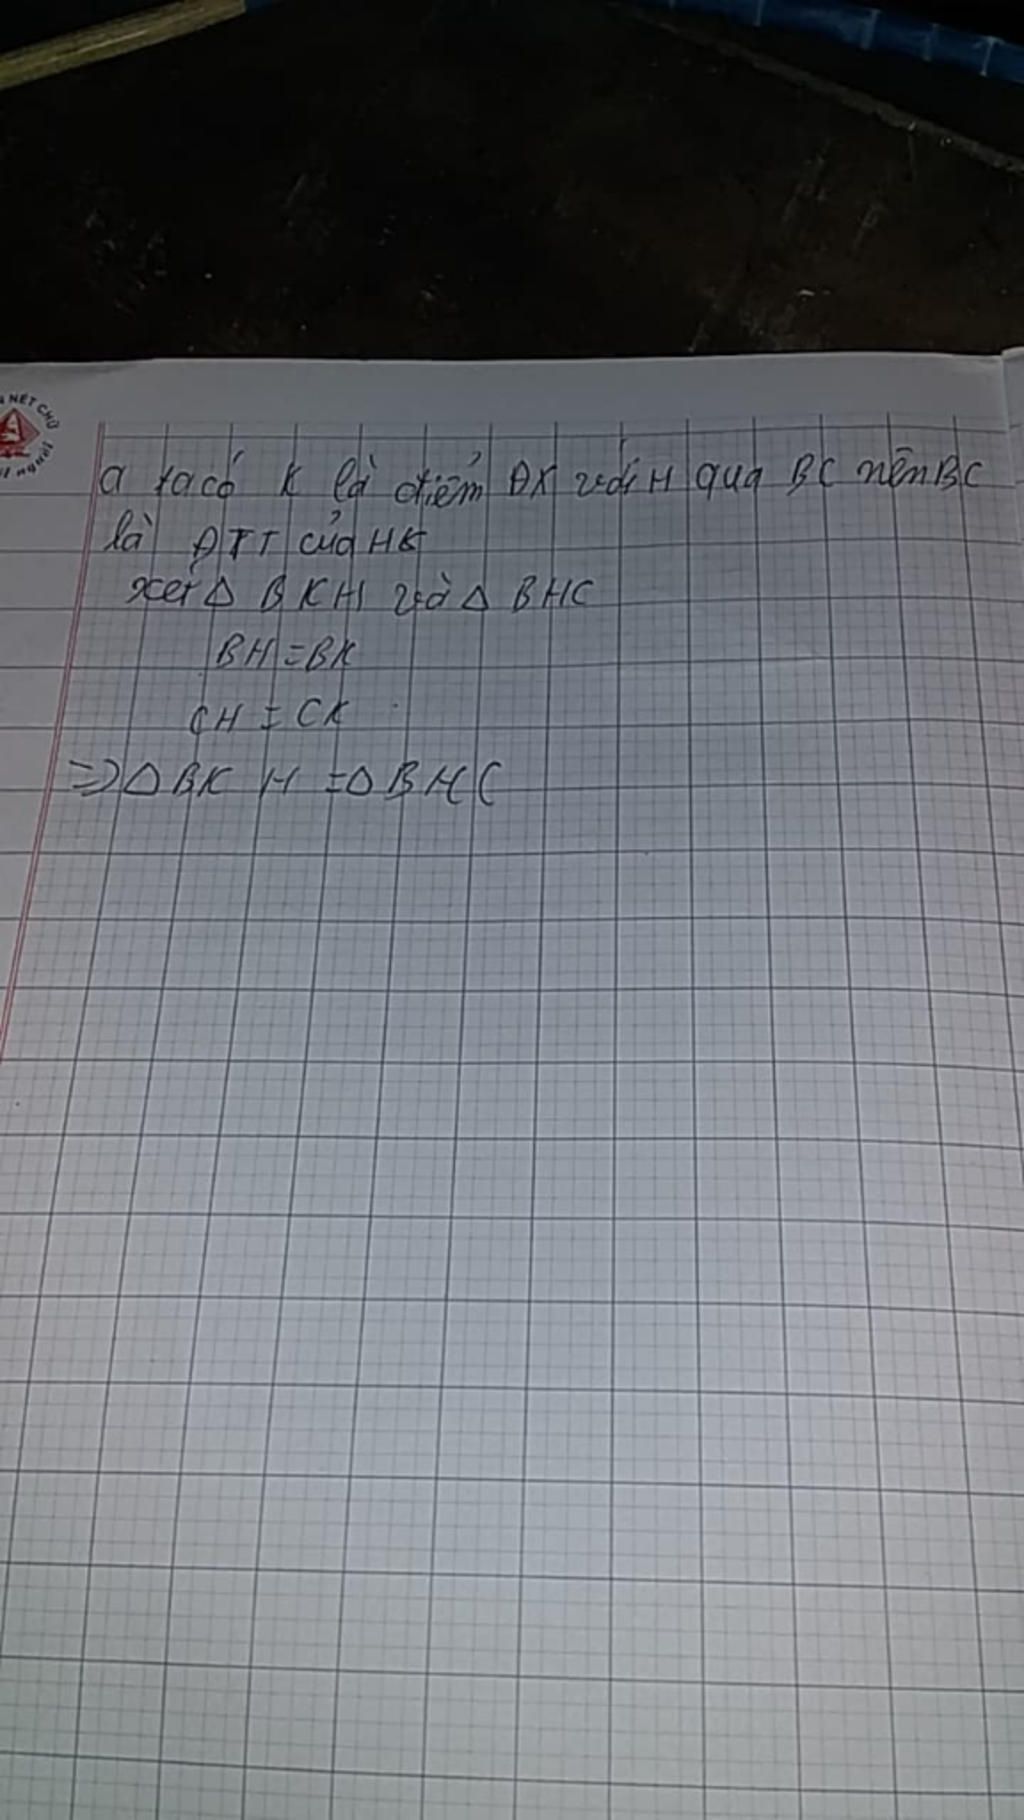 NÉT CHỮ
người
a ta có K là điểm ĐX với H qua BC nên BC
là ĐTT của HK
xet Δ BKH và Δ BHC
BH = BK
CH = CK
=> Δ BKH = Δ BHC